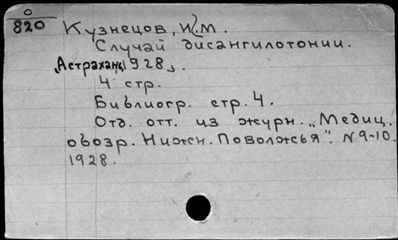 0
820
Кузнецов, И. М.
Случай дисангилотонии.
[Астрахань, 1928].
4 стр.
Библиогр. стр. 4.
Отд. отт. из журн. „Медиц.
обозр. Нижн. Поволжья". N 9-10.
1928.